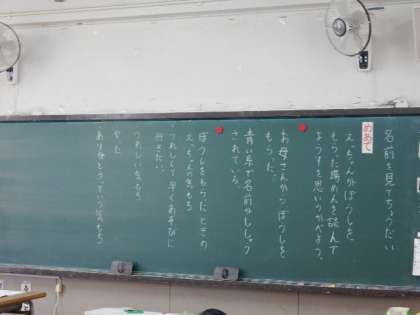 名前を見てちょうだい
めあて
えっちゃんがぼうしを
もらった場めんを読んで
ようすを思いうかべよう。
お母さんからぼうしを
もらった。
青い糸で名前がししゅう
されている。
ぼうしをもらったときの
えっちゃんの気もち
うれしくて早くあそびに
行きたい。
うれしい気もち
やった
ありがとうっていう気もち